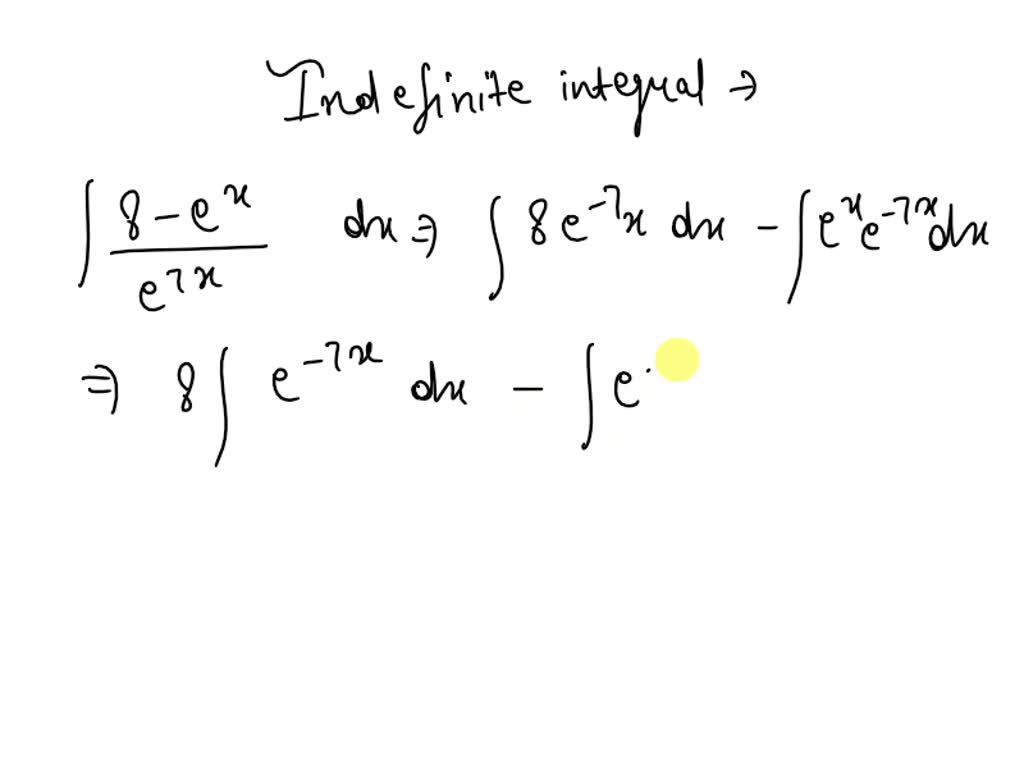 Indefinite integral →
∫ (8 - e^x)/(e^{7x}) dx ⇒ ∫ 8 e^{-7x} dx - ∫ e^x e^{-7x} dx
⇒ 8 ∫ e^{-7x} dx - ∫ e